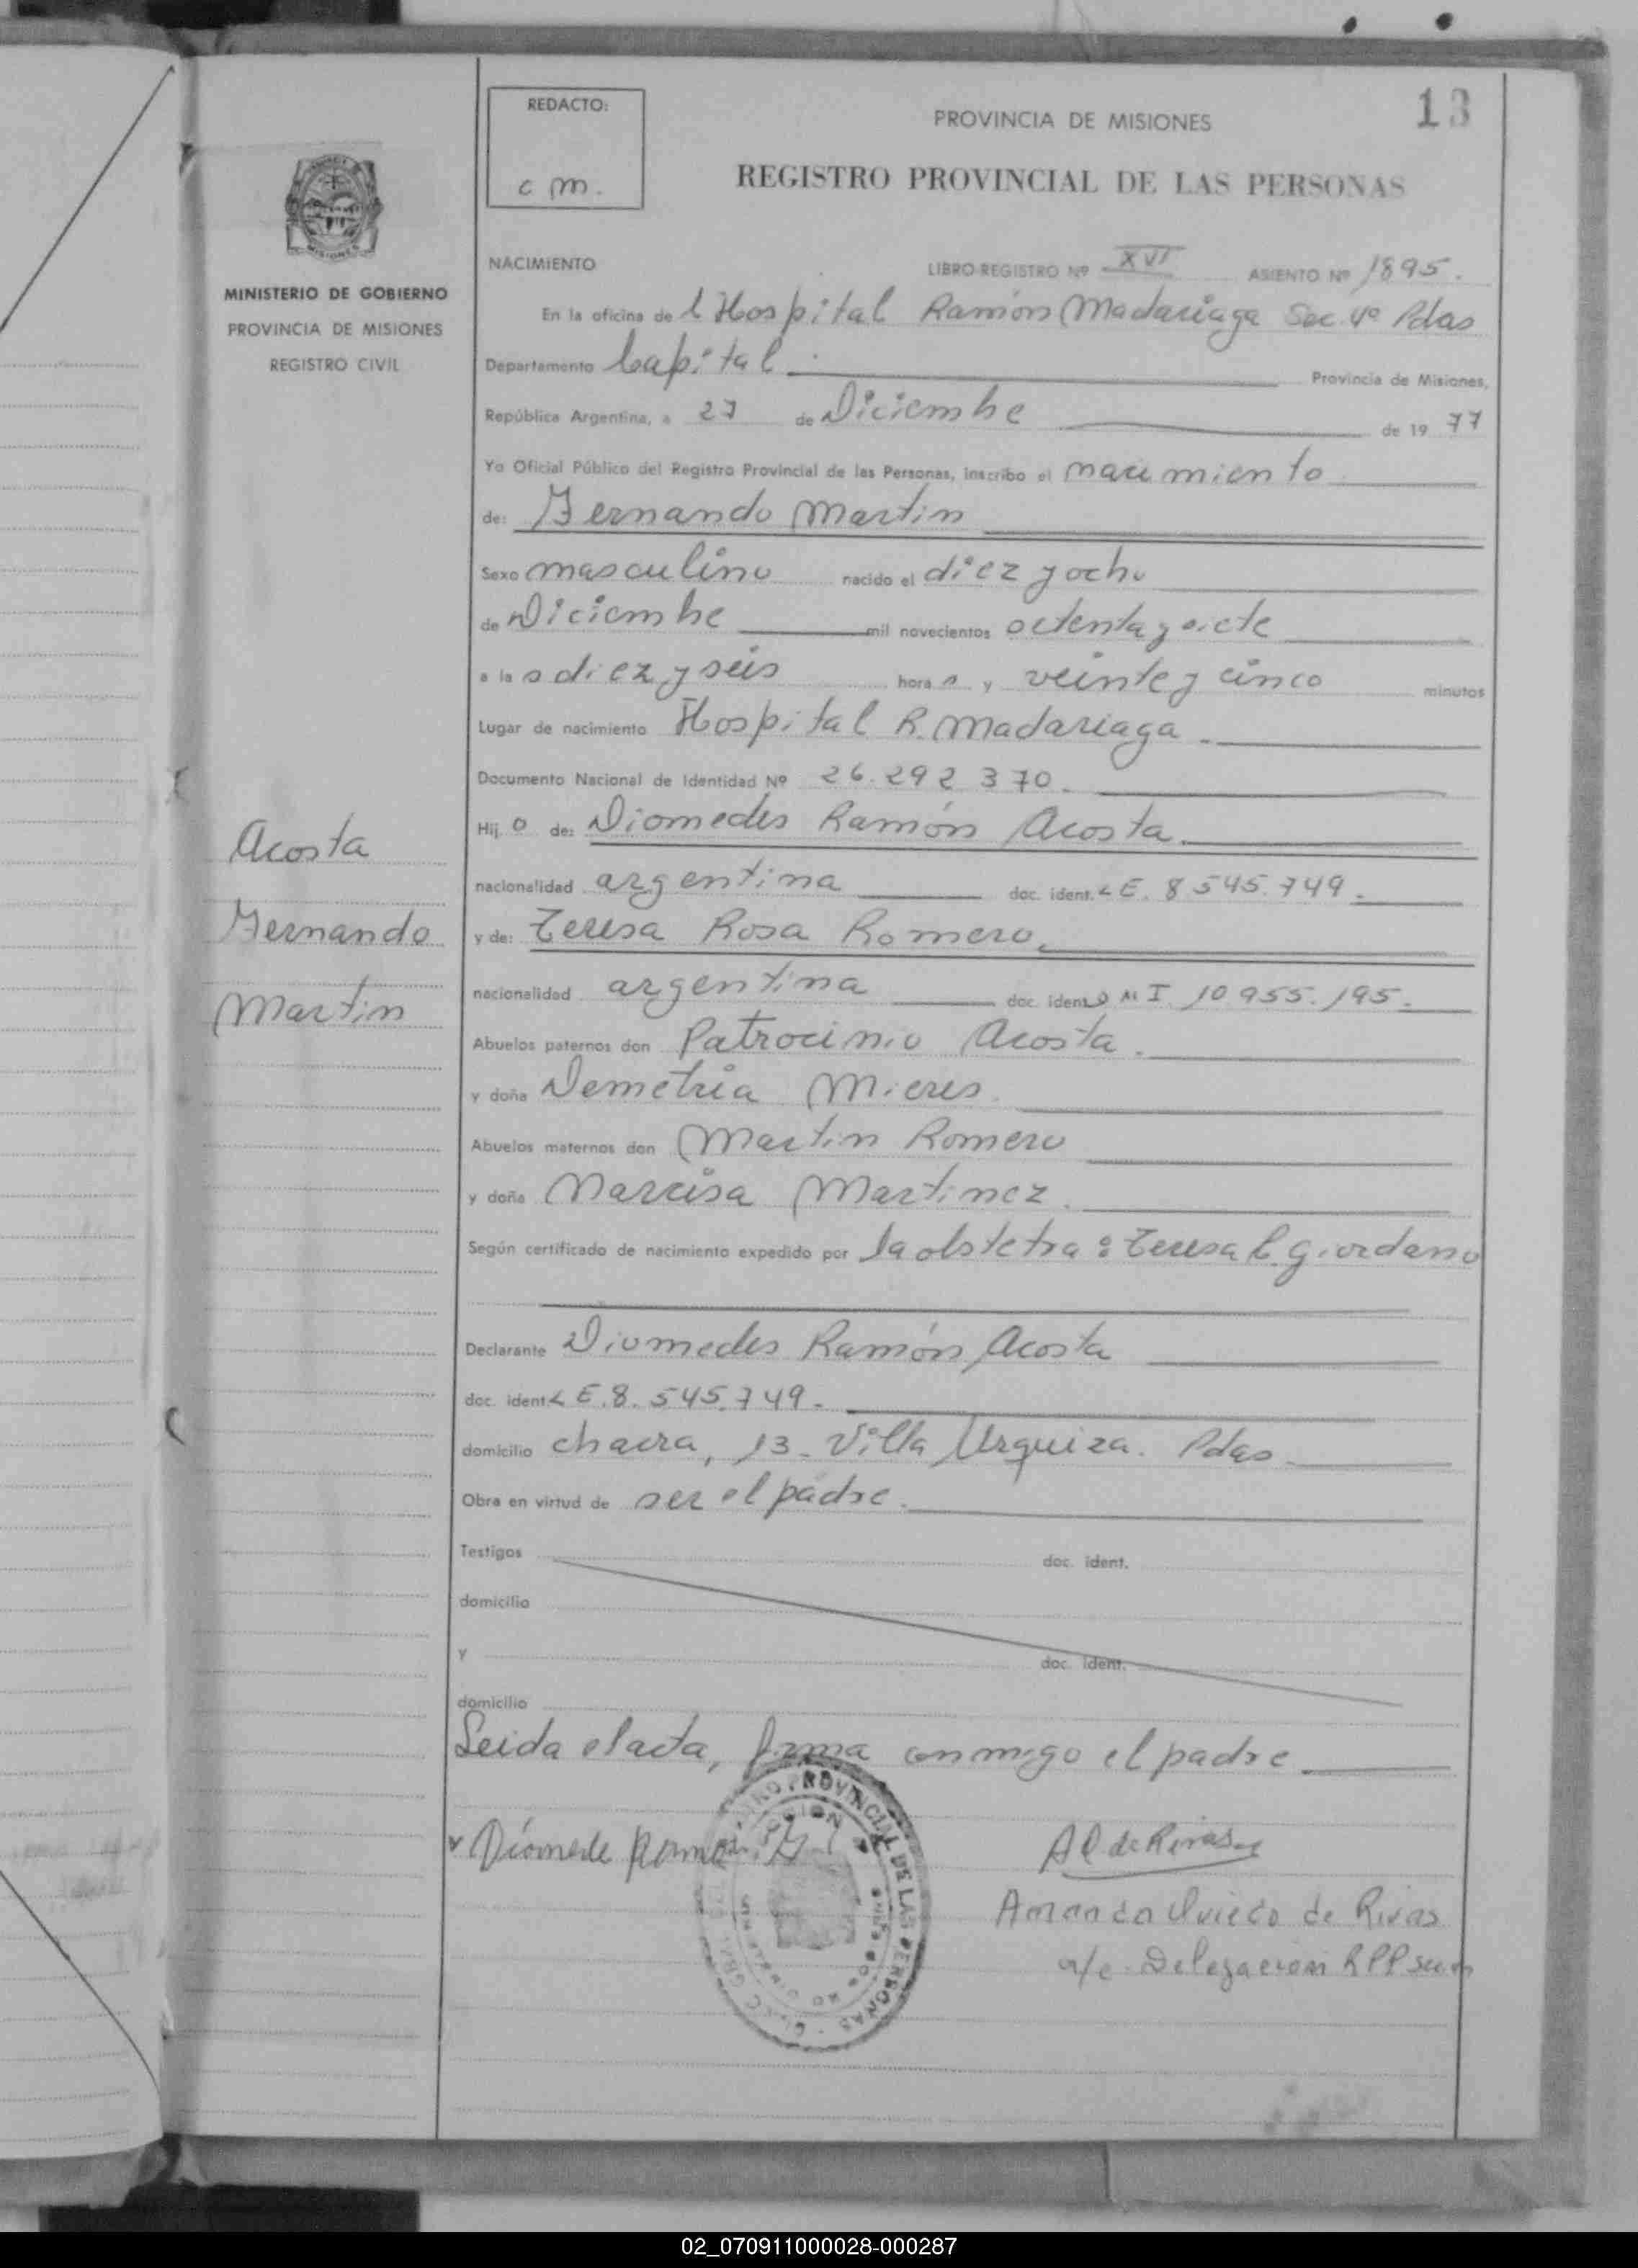 13
REDACTO:
c m.
PROVINCIA DE MISIONES
REGISTRO PROVINCIAL DE LAS PERSONAS
MINISTERIO DE GOBIERNO
PROVINCIA DE MISIONES
REGISTRO CIVIL
NACIMIENTO
LIBRO-REGISTRO Nº XVI ASIENTO Nº 1895.
En la oficina de l Hospital Ramón Madariaga Sec. 4ª Pdas
Departamento Capital. Provincia de Misiones,
República Argentina, a 27 de Diciembre de 19 77
Yo Oficial Público del Registro Provincial de las Personas, inscribo el nacimiento
de: Fernando Martin
Sexo masculino nacido el diez y ocho
de Diciembre mil novecientos octenta y siete
a la s diez y seis hora s y veinte y cinco minutos
Lugar de nacimiento Hospital R. Madariaga.
Documento Nacional de Identidad Nº 26.292.370.
Hij o de: Diomedes Ramón Acosta.
nacionalidad argentina doc. ident. L E. 8.545.749.
y de: Teresa Rosa Romero.
nacionalidad argentina doc. ident. D N I 10.955.195.
Abuelos paternos don Patrocinio Acosta.
y doña Demetria Mieres.
Abuelos maternos don Martin Romero
y doña Narcisa Martinez.
Según certificado de nacimiento expedido por la obstetra: Teresa C. Giordano
Declarante Diomedes Ramón Acosta
doc. ident. L E. 8.545.749.
domicilio chacra, 13. Villa Urquiza. Pdas.
Obra en virtud de ser el padre.
Testigos doc. ident.
domicilio
y doc. ident.
domicilio
Leida el acta, firma conmigo el padre
Acosta
Fernando
Martin
Diomede Ramon
PROVINCIAL DE LAS PERSONAS
A O de Rivas
Amanda Oviedo de Rivas
a/c. Delegación RPP
02_070911000028-000287